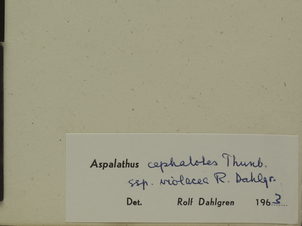 Aspalathus cephalotes Thunb.
ssp. violacea R. Dahlgr.
Det. Rolf Dahlgren 1963